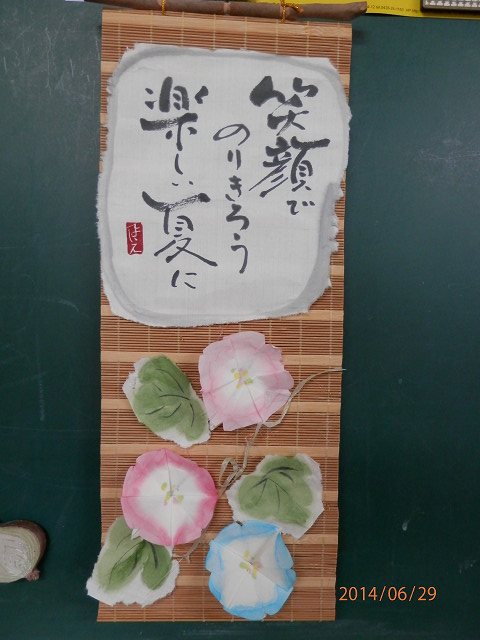 笑顔で
のりきろう
楽しい夏に
2014/06/29